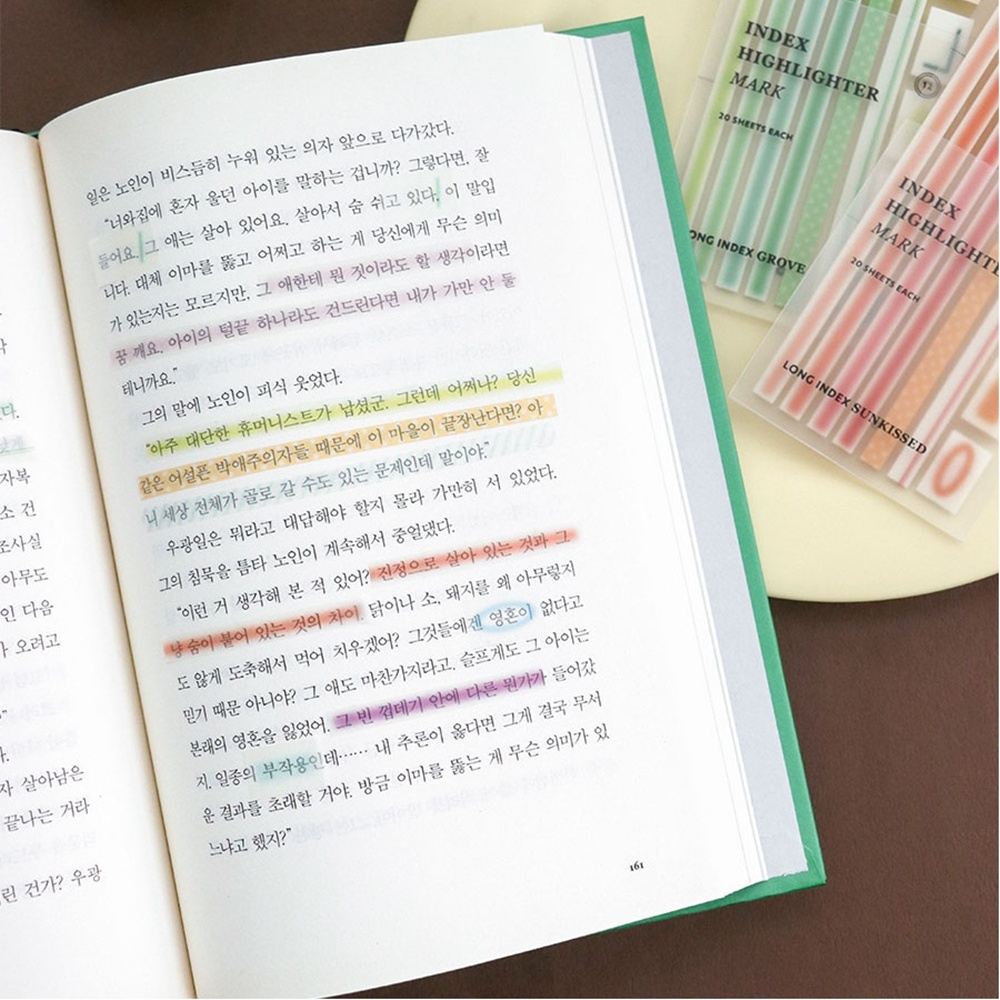 일은 노인이 비스듬히 누워 있는 의자 앞으로 다가갔다.
“너와집에 혼자 울던 아이를 말하는 겁니까? 그렇다면, 잘
들어요. 그 애는 살아 있어요. 살아서 숨 쉬고 있다. 이 말입
니다. 대체 이마를 뚫고 어쩌고 하는 게 당신에게 무슨 의미
가 있는지는 모르지만, 그 애한테 뭔 짓이라도 할 생각이라면
꿈 깨요. 아이의 털끝 하나라도 건드린다면 내가 가만 안 둘
테니까요.”
그의 말에 노인이 피식 웃었다.
“아주 대단한 휴머니스트가 납셨군. 그런데 어쩌나? 당신
같은 어설픈 박애주의자들 때문에 이 마을이 끝장난다면? 아
니 세상 전체가 골로 갈 수도 있는 문제인데 말이야.”
우광일은 뭐라고 대답해야 할지 몰라 가만히 서 있었다.
그의 침묵을 틈타 노인이 계속해서 중얼댔다.
“이런 거 생각해 본 적 있어? 진정으로 살아 있는 것과 그
냥 숨이 붙어 있는 것의 차이. 닭이나 소, 돼지를 왜 아무렇지
도 않게 도축해서 먹어 치우겠어? 그것들에겐 영혼이 없다고
믿기 때문 아니야? 그 애도 마찬가지라고. 슬프게도 그 아이는
본래의 영혼을 잃었어. 그 빈 껍데기 안에 다른 뭔가가 들어갔
지. 일종의 부작용인데…… 내 추론이 옳다면 그게 결국 무서
운 결과를 초래할 거야. 방금 이마를 뚫는 게 무슨 의미가 있
느냐고 했지?”
161
다.
자복
소 건
조사실
아무도
인 다음
오려고
자 살아남은
끝나는 거라
린 건가? 우광
INDEX
HIGHLIGHTER
MARK
20 SHEETS EACH
LONG INDEX GROVE
12
INDEX
HIGHLIGHTE
MARK
20 SHEETS EACH
LONG INDEX SUNKISSED
0